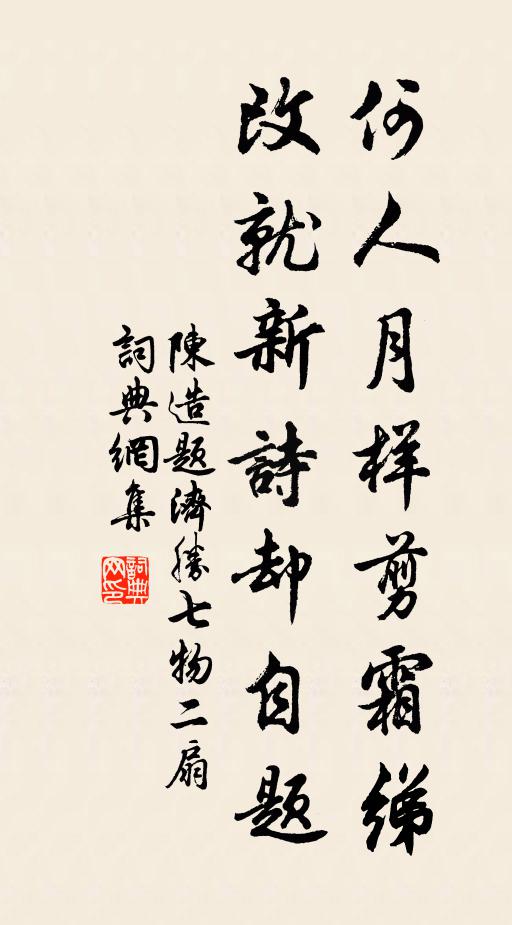 何人月样剪霜绨
改就新詩却自题
陳造题濟勝七物二扇
詞典網集
詞典网印